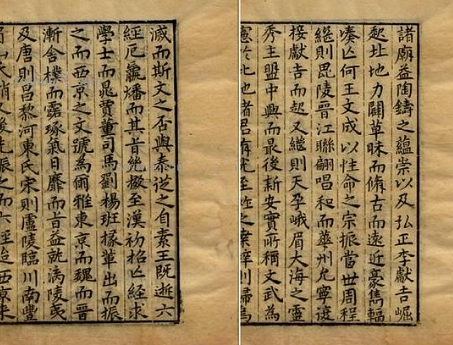 諸廟益陶鑄之蘊崇以及弘正李獻吉崛
起壯地力闢草昧而脩古而遠近豪雋輻
湊亾何王文成以性命之宗振當世周程
繼則毘陵晉江聯翩唱和而華州允寧遂
接獻吉而起又繼則天孕峨眉大海之靈
秀主盟中興而最後新安實所稱文武為
滅而斯文之否與泰從之自素王既逝六
經厄嬴燔而其旨幾撤至漢初招亾經求
學士而鼂賈董司馬劉楊班掾輩出而振
之而西京之文號為爾雅東京而魏而晉
漸舍樸而露琢氣日靡而旨益就漓陵夷
及唐則昌黎河東氏宋則廬陵臨川南豐